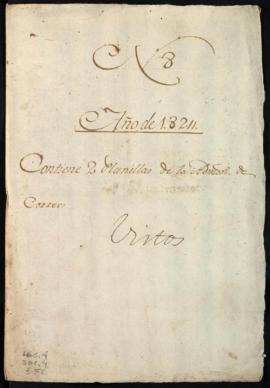 N 8
Año de 1.824.
Contiene 2 Planillas de la Admon. de
Correos
Vistos